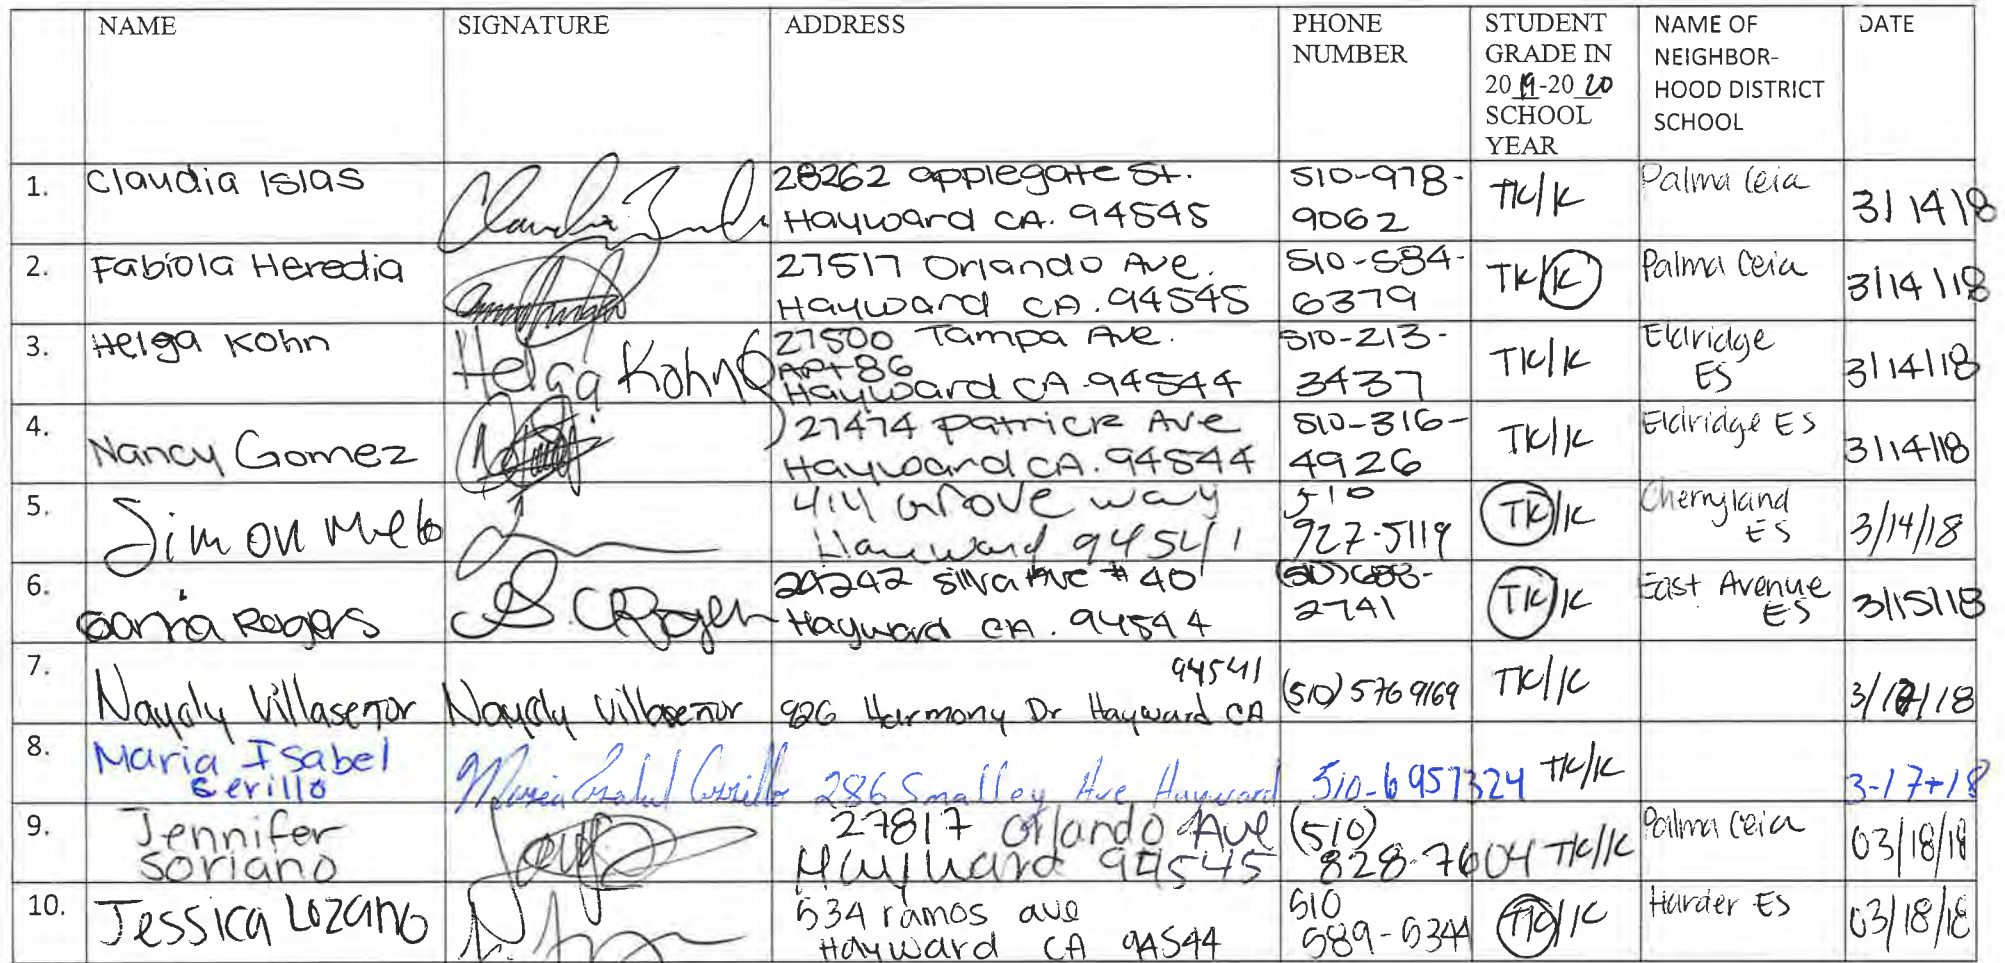 NAME SIGNATURE ADDRESS PHONE NUMBER STUDENT GRADE IN 2019-2020 SCHOOL YEAR NAME OF NEIGHBOR-HOOD DISTRICT SCHOOL DATE
1. Claudia Islas 28262 applegate St. 510-978-
Hayward CA. 94545 9062 TK/K Palma Ceia 3/14/18
2. Fabiola Heredia 27517 Orlando Ave. 510-584-
Hayward CA. 94545 6379 TK/K Palma Ceia 3/14/18
3. Helga Kohn Helga Kohn 27500 Tampa Ave. 510-213-
APt 86
Hayward CA 94544 3437 TK/K Eldridge ES 3/14/18
4. Nancy Gomez 27474 Patrick Ave 510-316-
Hayward CA. 94544 4926 TK/K Eldridge ES 3/14/18
5. Simon Melo 414 Grove way 510
Hayward 94541 927-5119 TK/K Cherryland ES 3/14/18
6. Rogers 24242 Silva Ave #40
Hayward CA. 94544 2741 TK/K East Avenue ES 3/15/18
7. Nayely Villasenor Nayely Villasenor 94541
926 Harmony Dr Hayward CA (510) 576 9169 TK/K
8. Maria Isabel
Cerillo Maria Isabel 286 Smalley Ave Hayward 510-6957324 TK/K 3-17-18
9. Jennifer
Soriano 27817 Orlando Ave (510)
Hayward 94545 828-7604 TK/K Palma Ceia 03/18/18
10. Jessica Lozano 534 ramos ave 510
Hayward CA 94544 589-6344 TK/K Harder ES 03/18/18